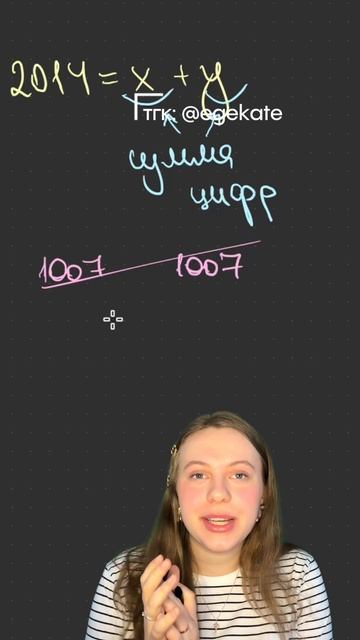 2014 = x + y
тгк: @egekate
сумма
цифр
1007 1007